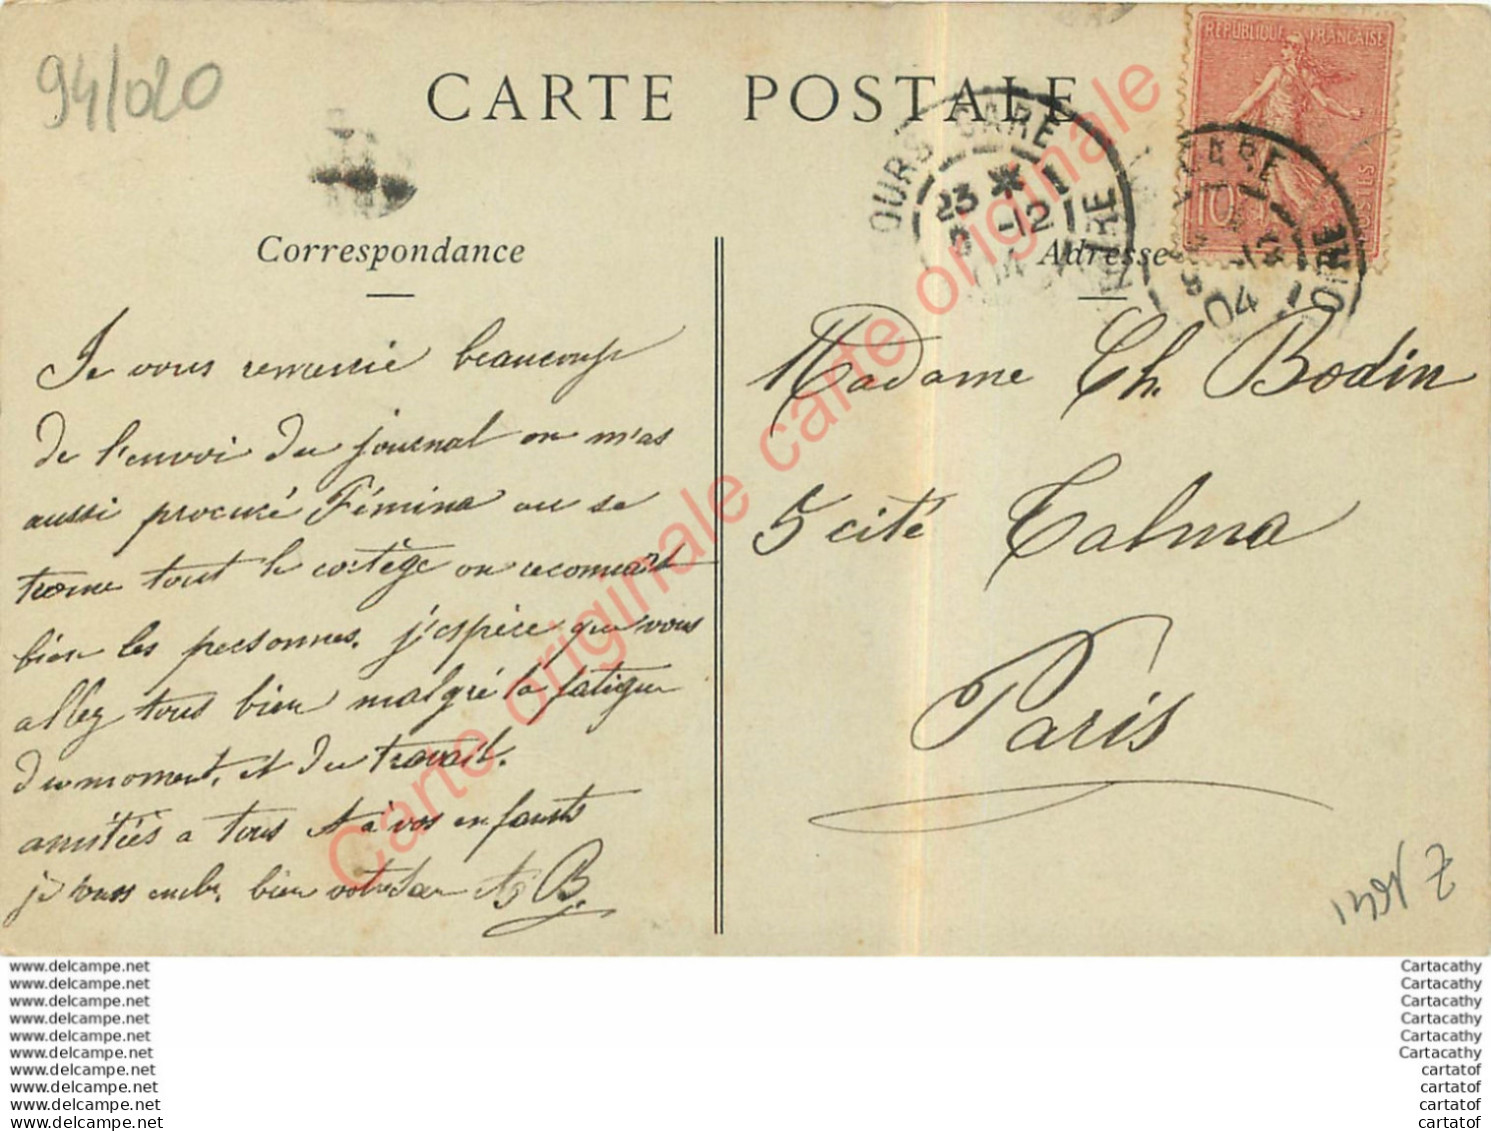 94/020
CARTE POSTALE
REPUBLIQUE FRANÇAISE
10
POSTES
OURS GARE
23 * 1
9 -12
04
GARE
04
OIRE
Correspondance
Adresse
Je vous remercie beaucoup
de l'envoi du journal on m'as
aussi procuré Fémina ou se
trouve tout le cortège on reconnait
bien les personnes. j'espère que vous
allez tous bien malgré la fatigue
du moment, et du travail.
amitiés a tous et à vos enfants
je vous bien B.
Madame Ch. Bodin
5 cité Talma
Paris
Carte originale carte originale
www.delcampe.net
www.delcampe.net
www.delcampe.net
www.delcampe.net
www.delcampe.net
www.delcampe.net
www.delcampe.net
www.delcampe.net
www.delcampe.net
www.delcampe.net
Cartacathy
Cartacathy
Cartacathy
Cartacathy
Cartacathy
Cartacathy
cartatof
cartatof
cartatof
cartatof